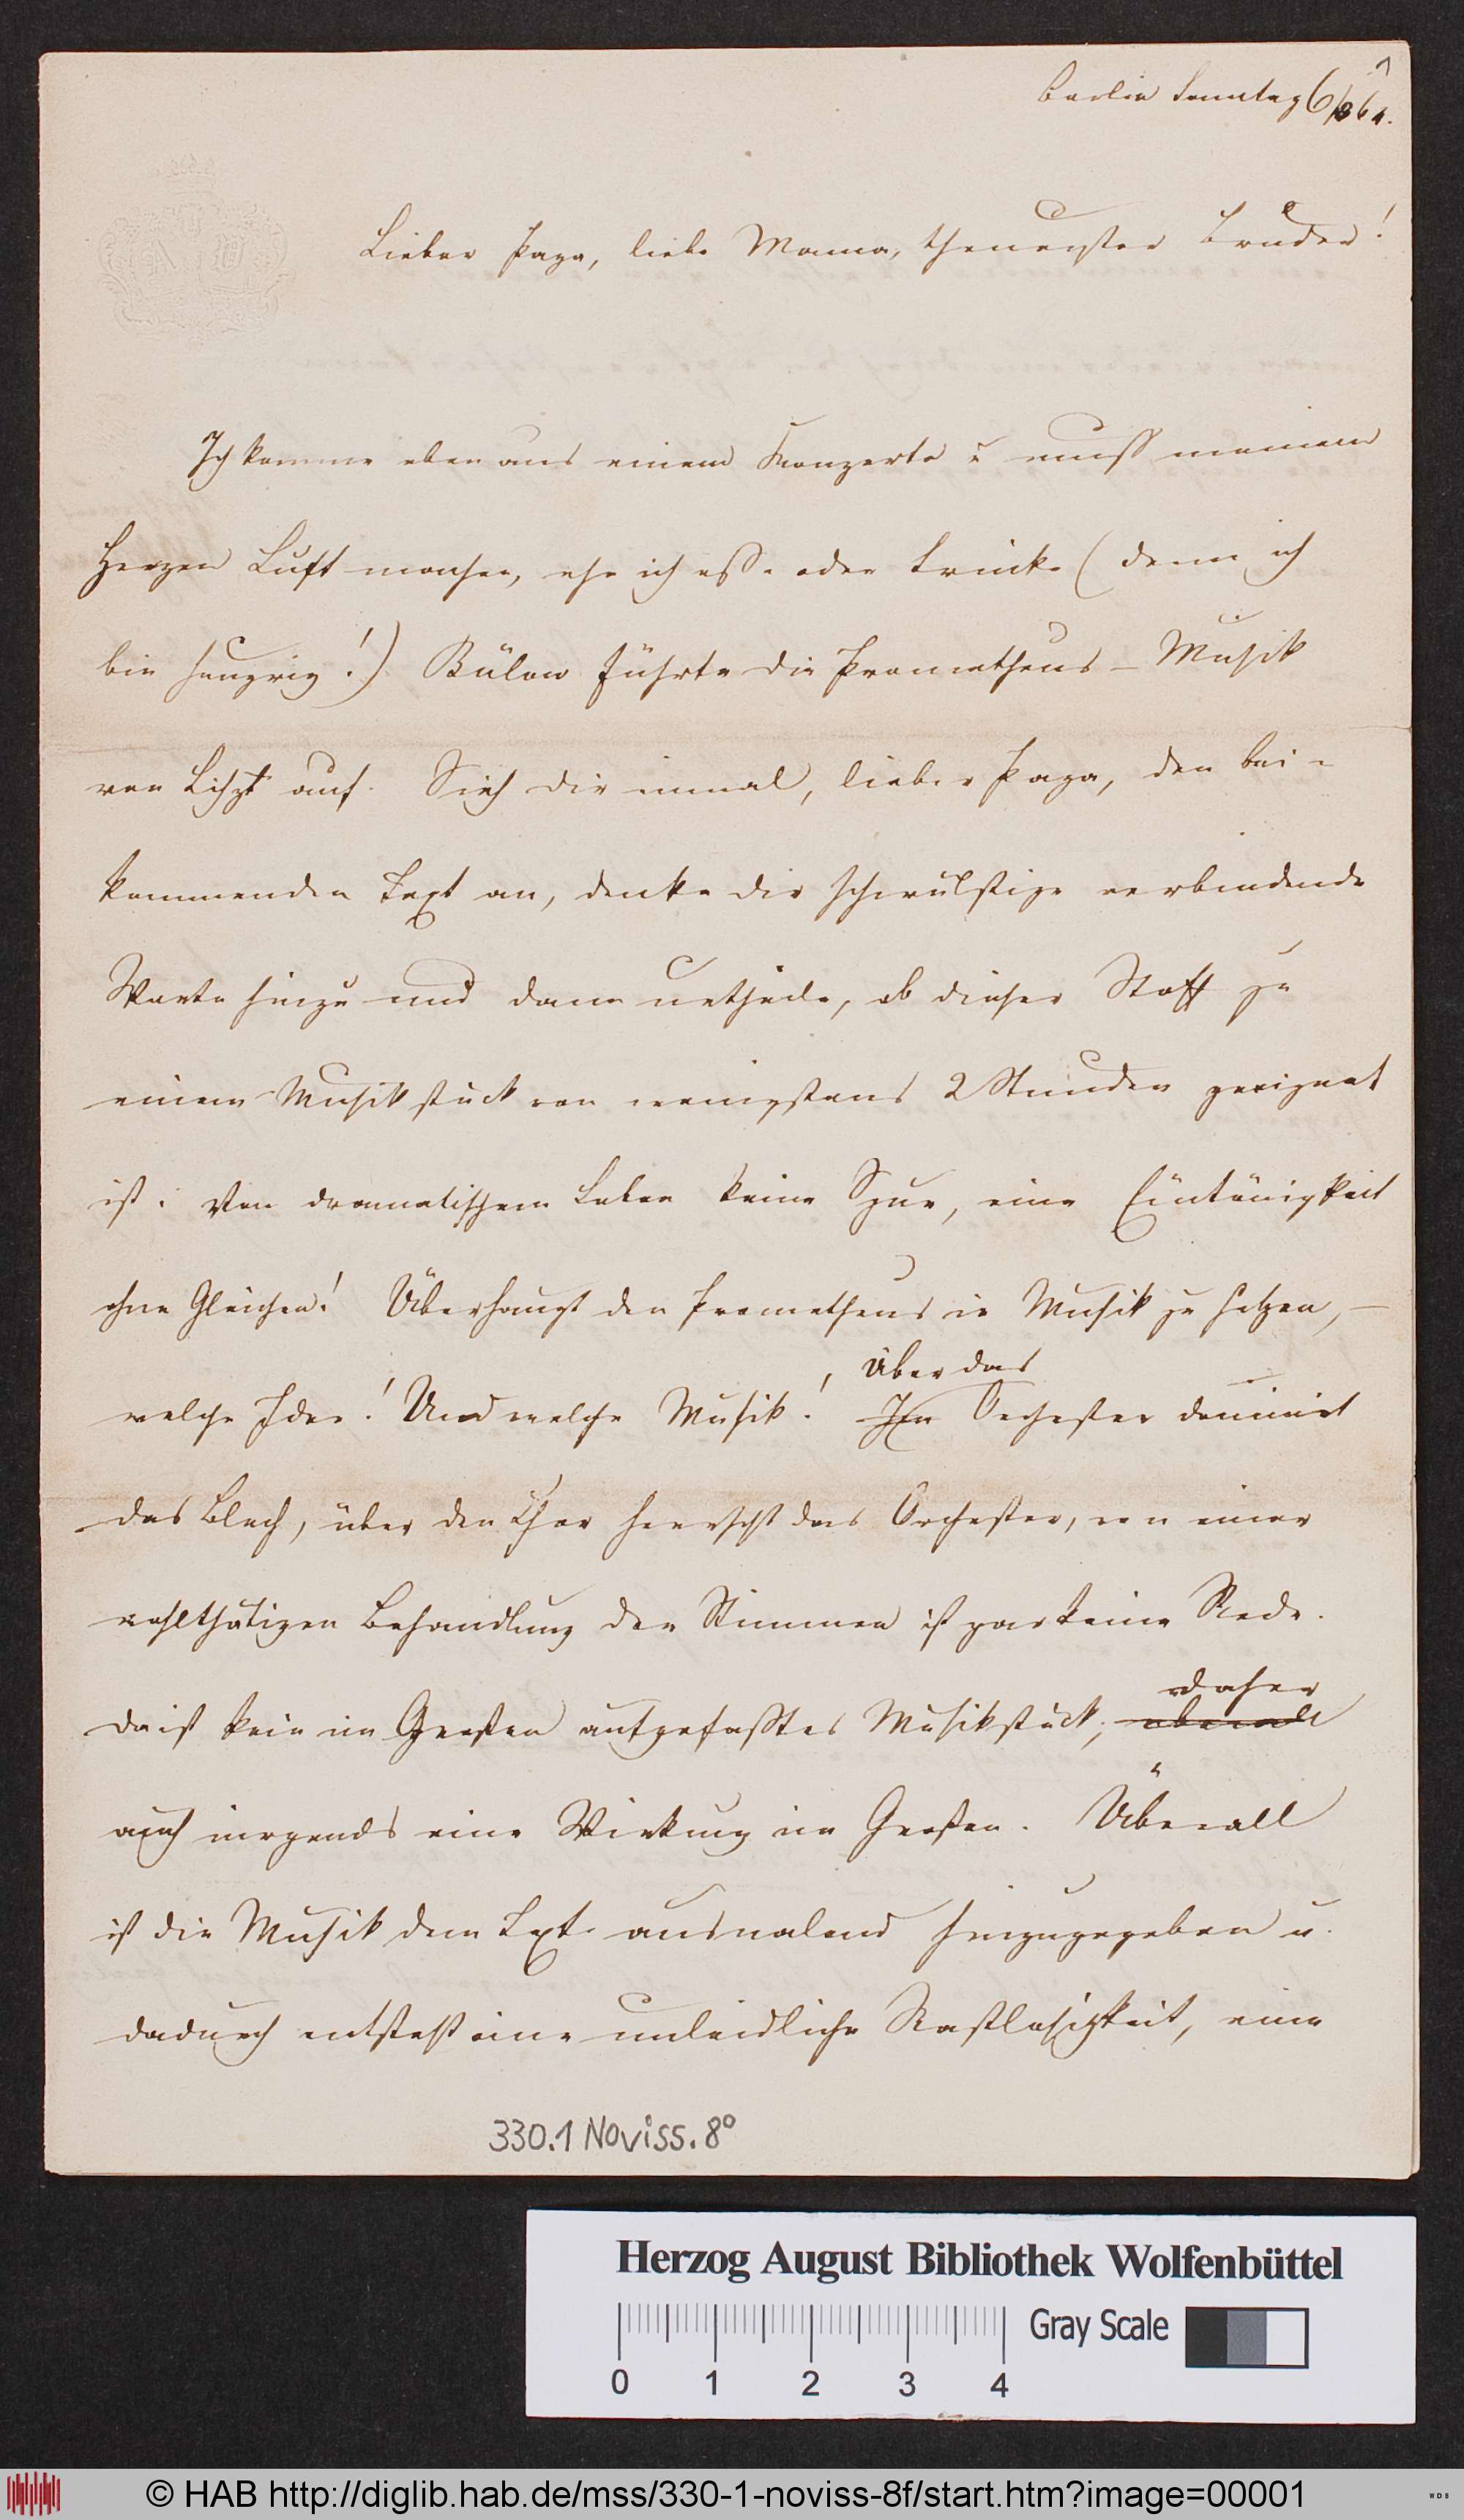 Berlin Sonntag 6/3 64.
1
Lieber Papa, liebe Mama, theuerster Bruder!
Ich komme eben aus einem Konzerte u muß meinem
Herzen Luft machen, ehe ich esse oder trinke (denn ich
bin hungrig!) Bülow führte die Prometheus-Musik
von Liszt auf. Sieh dir inmal, lieber Papa, den bei-
kommenden Text an, denke die schwülstige verbindende
Worte hinzu und dann urtheile, ob dieser Stoff zu
einem Musikstück von wenigstens 2 Stunden geeignet
ist. Von dramatischem Leben keine Spur, eine Eintönigkeit
ohne Gleichen! Überhaupt den Prometheus in Musik zu setzen, –
über das
welche Idee! Und welche Musik! Im Orchester dominirt
das Blech, über den Chor herrscht das Orchester, von einer
wohlthätigen Behandlung der Stimmen ist gar keine Rede.
daher
Da ist kein im Großen aufgefaßtes Musikstück; überall
auch nirgends eine Wirkung im Großen. Überall
ist die Musik dem Text ausmalend hinzugegeben u.
dadurch entsteht eine unleidliche Rastlosigkeit, eine
330.1 Noviss. 8°
Herzog August Bibliothek Wolfenbüttel
Gray Scale
0 1 2 3 4
© HAB http://diglib.hab.de/mss/330-1-noviss-8f/start.htm?image=00001